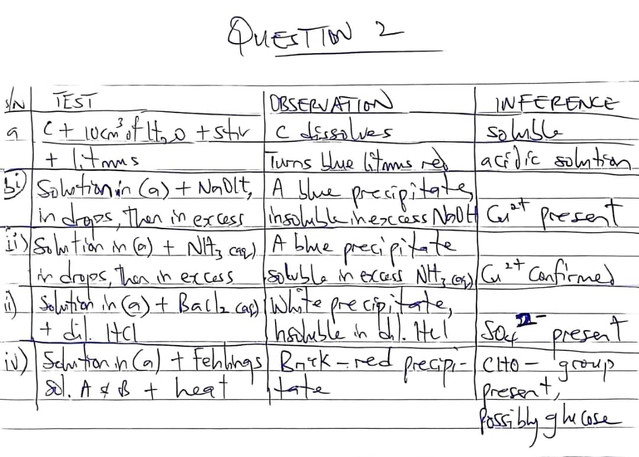 QUESTION 2
S/N TEST OBSERVATION INFERENCE
a C + 10cm³ of H₂O + stir C dissolves soluble
+ litmus Turns blue litmus red acidic solution
bi) Solution in (a) + NaOH, A blue precipitate,
in drops, then in excess insoluble in excess NaOH Cu²⁺ present
ii) Solution in (a) + NH₃ (aq) A blue precipitate
in drops, then in excess soluble in excess NH₃ (aq) Cu²⁺ confirmed
ii) Solution in (a) + BaCl₂ (aq) White precipitate,
+ dil. HCl Insoluble in dil. HCl SO₄²⁻ present
iv) Solution in (a) + Fehlings Brick-red precipi- CHO- group
sol. A & B + heat tate present,
possibly glucose